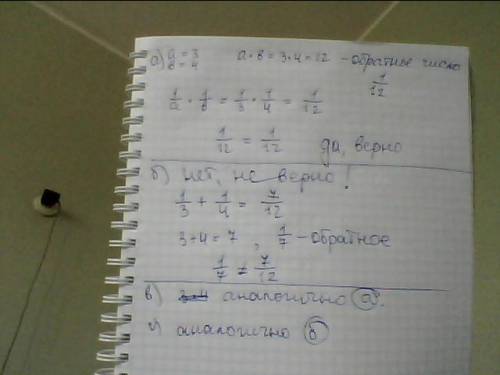 а) a = 3 a · b = 3 · 4 = 12 – обратное число
b = 4 1/12
1/a · 1/b = 1/3 · 1/4 = 1/12
1/12 = 1/12 да, верно
б) нет, не верно!
1/3 + 1/4 = 7/12
3+4 = 7, 1/7 – обратное
1/7 ≠ 7/12
в) аналогично а.
г) аналогично б